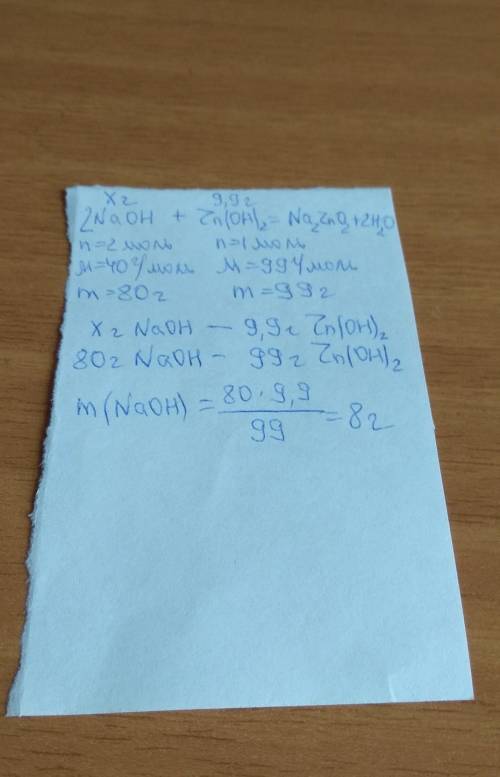 x г 9,9 г
2NaOH + Zn(OH)₂ = Na₂ZnO₂ + 2H₂O
n = 2 моль n = 1 моль
M = 40 г/моль M = 99 г/моль
m = 80 г m = 99 г
x г NaOH — 9,9 г Zn(OH)₂
80 г NaOH — 99 г Zn(OH)₂
m(NaOH) = 80 · 9,9 / 99 = 8 г